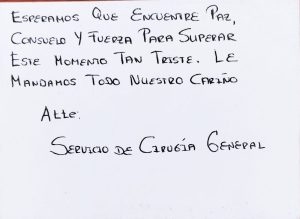 Esperamos Que Encuentre Paz,
Consuelo Y Fuerza Para Superar
Este Momento Tan Triste. Le
Mandamos Todo Nuestro Cariño
Atte:
Servicio de Cirugía General